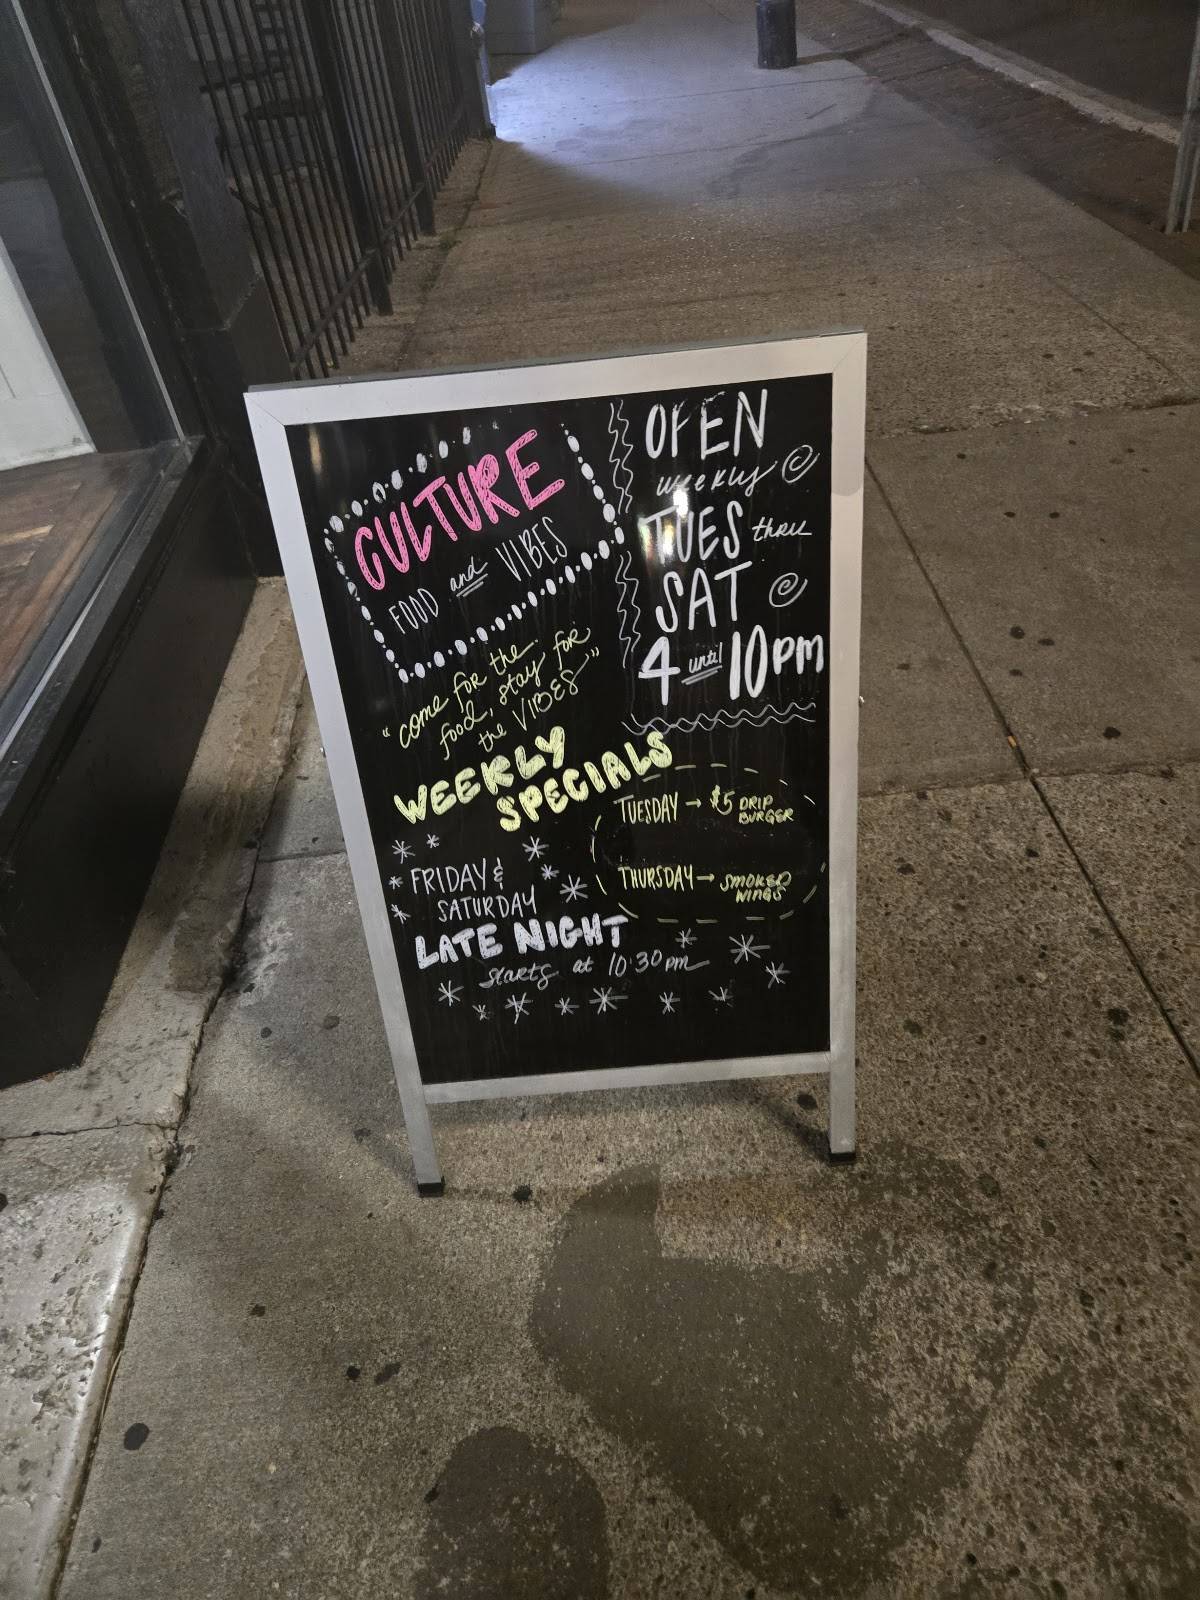 CULTURE
FOOD and VIBES
"come for the
food, stay for
the VIBES"
OPEN
weekly
TUES thru
SAT
4 until 10pm
WEEKLY
SPECIALS
TUESDAY → $5 DRIP
BURGER
THURSDAY → SMOKED
WINGS
FRIDAY &
SATURDAY
LATE NIGHT
starts at 10:30pm